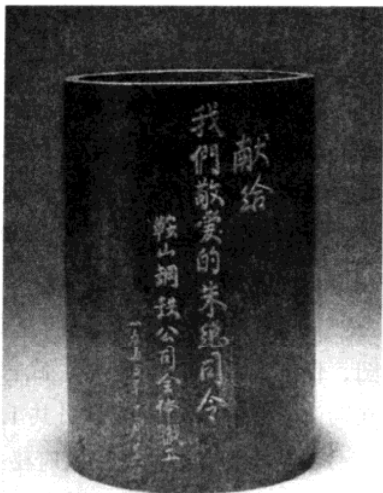 献给
我們敬愛的朱總司令
鞍山鋼鉄公司全体職工
一九五三年